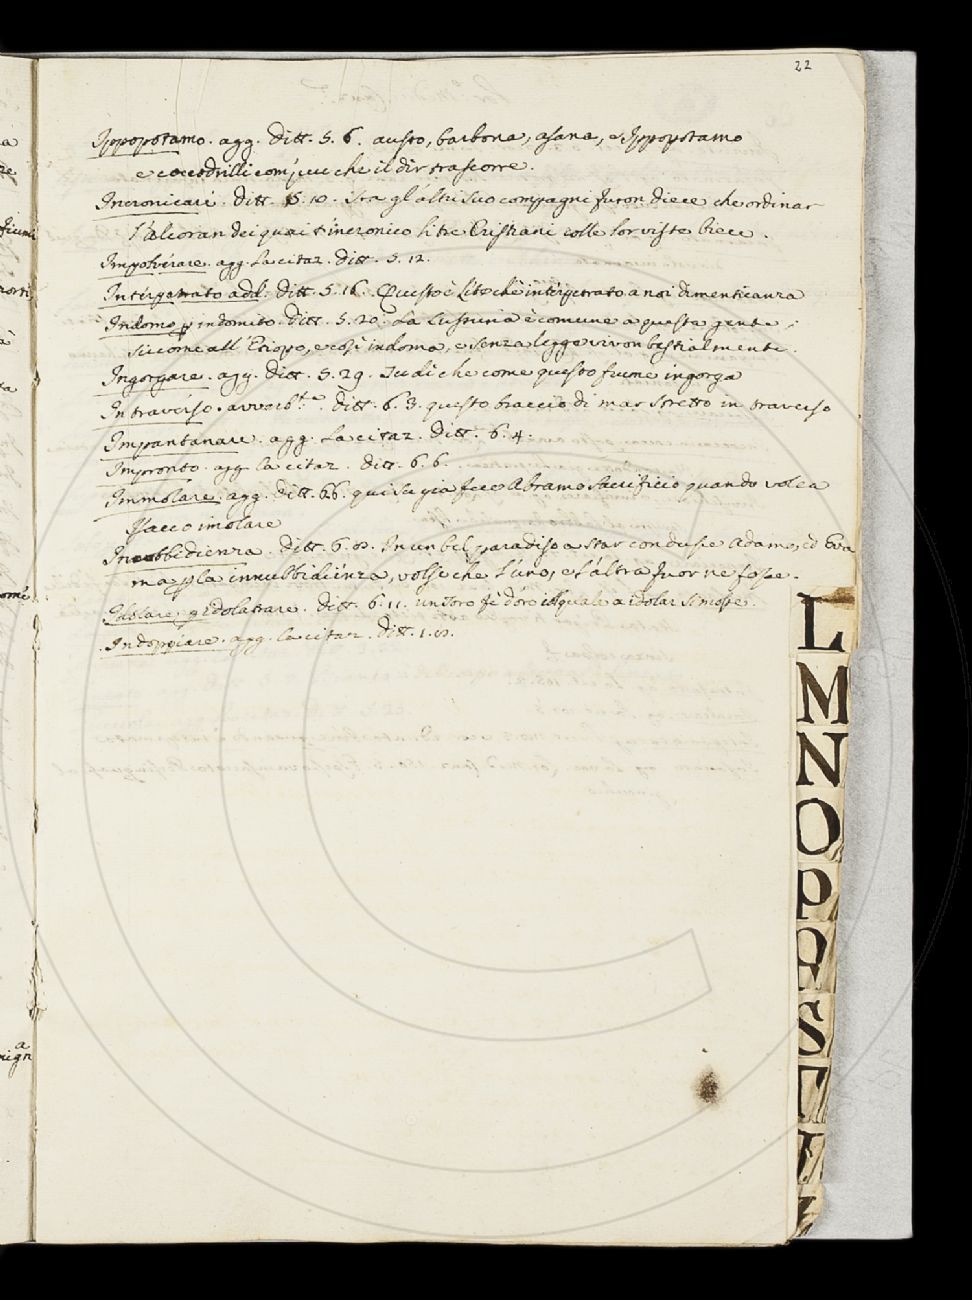 22
Ippopotamo. agg. Ditt. 5. 6. austo, barbona, asana, e Ippopotamo
e cocodrilli com' piu che il dir trascorre.
Incronicare. Ditt. 5. 10. Fra gl'altri suo compagni furon diece che ordinar
l'Alcoran dei quai t'incronico li tre Cristiani colle lor viste biece.
Impolverare. agg. la citaz. Ditt. 5. 12.
Interpetrato add. Ditt. 5. 16. Questo è Lite che interpetrato a noi dimenticanza
Indomo p indomito. Ditt. 5. 20. La Lussuria è comune a questa gente,
siccome all' Etiopo, e così indoma, e senza legge vivon bestialmente.
Ingorgare. agg. Ditt. 5. 29. Iudi che come questo fiume ingorga
Intraverso. avverb.te Ditt. 6. 3. questo braccio di mar stretto in traverso
Impantanare. agg. la citaz. Ditt. 6. 4.
Impronto. agg. la citaz. Ditt. 6. 6.
Immolare. agg. Ditt. 6.6. qui su gia fece Abramo Sacrificio quando volea
Isacco imolare
Inobbidienza. Ditt. 6. 8. In un bel paradiso a star condusse Adamo, ed Eva
ma p la innubbidienza, volse che l'uno, e l'altra fuor ne fosse.
Idolare p Idolatrare. Ditt. 6. 11. un Toro fè d'oro il quale a idolar si mosse.
Indoppiare. agg. la citaz. Ditt. 1. 8.
L
M
N
O
P
Q
S
T
V
Z